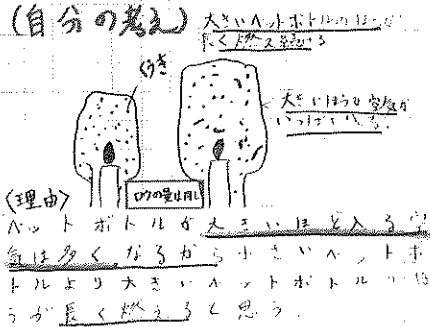 (自分の考え)
大きいペットボトルのほうが
長く燃え続ける
くうき
大きいほうは空気が
いっぱい
ロウの量は同じ
〈理由〉
ペットボトルが大きいほど入る空
気は多くなるから小さいペットボ
トルより大きいペットボトルのほ
うが長く燃えると思う。